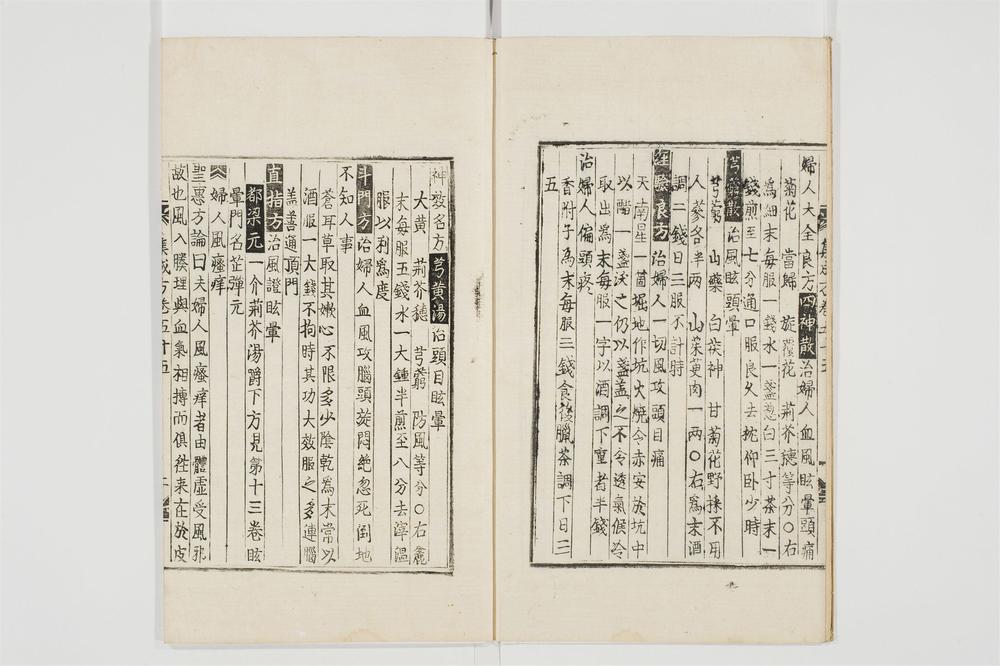 婦人大全良方四神散治婦人血風眩暈頭痛
菊花 當歸 旋覆花 荊芥穗等分○右
爲細末每服一錢水一盞葱白三寸茶末一
錢煎至七分通口服良久去枕仰卧少時
芎藭散治風眩頭暈
芎藭 山藥 白茯神 甘菊花野採不用
人參各半兩 山茱萸肉一兩○右爲末酒
調二錢日二服不計時
經驗良方治婦人一切風攻頭目痛
天南星一箇掘地作坑火燒令赤安於坑中
以醋一盞沃之仍以盞盖之不令透氣候冷
取出爲末每服一字以酒調下重者半錢
治婦人偏頭疼
香附子爲末每服二錢食後臘茶調下日三
五
神效名方芎黃湯治頭目眩暈
大黃 荊芥穗 芎藭 防風等分○右麁
末每服五錢水一大鍾半煎至八分去滓溫
服以利爲度
斗門方治婦人血風攻腦頭旋悶絶忽死倒地
不知人事
蒼耳草取其嫩心不限多少陰乾爲末常以
酒服一大錢不拘時其功大效服之多連腦
盖善通頂門
直指方治風證眩暈
都梁元一介荊芥湯嚼下方見第十三卷眩
暈門名芷彈元
婦人風瘙痒
聖惠方論曰夫婦人風瘙痒者由體虛受風邪
故也風入腠理與血氣相搏而俱往来在於皮
集成方卷五十五
二